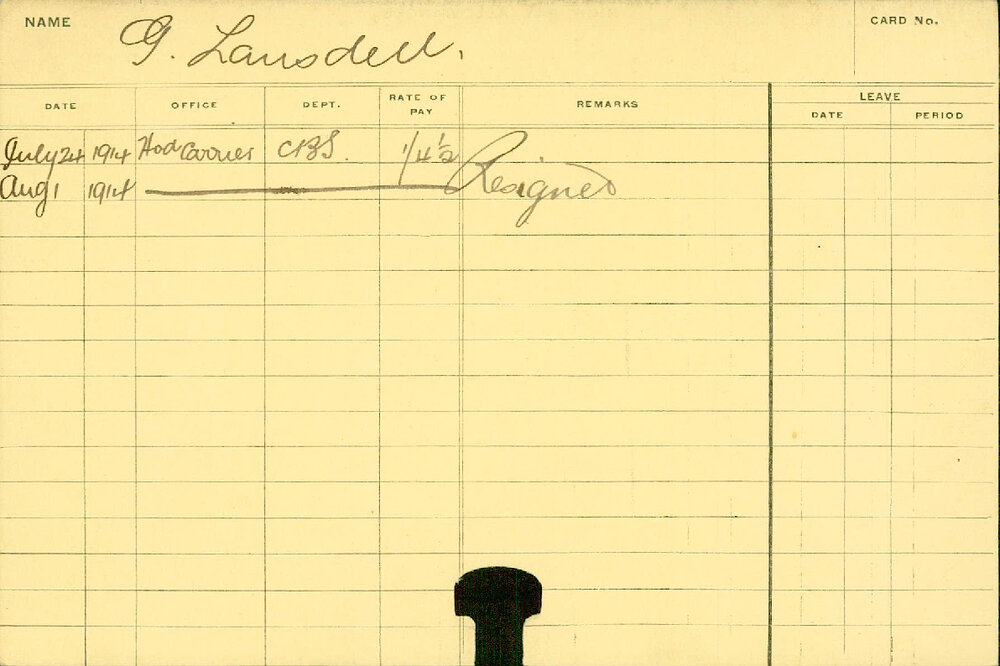 NAME G. Lansdell. CARD No.
DATE OFFICE DEPT. RATE OF PAY REMARKS LEAVE
DATE PERIOD
July 24 1914 Hod Carrier CBS. 1/4½
Aug 1 1914 Resigned